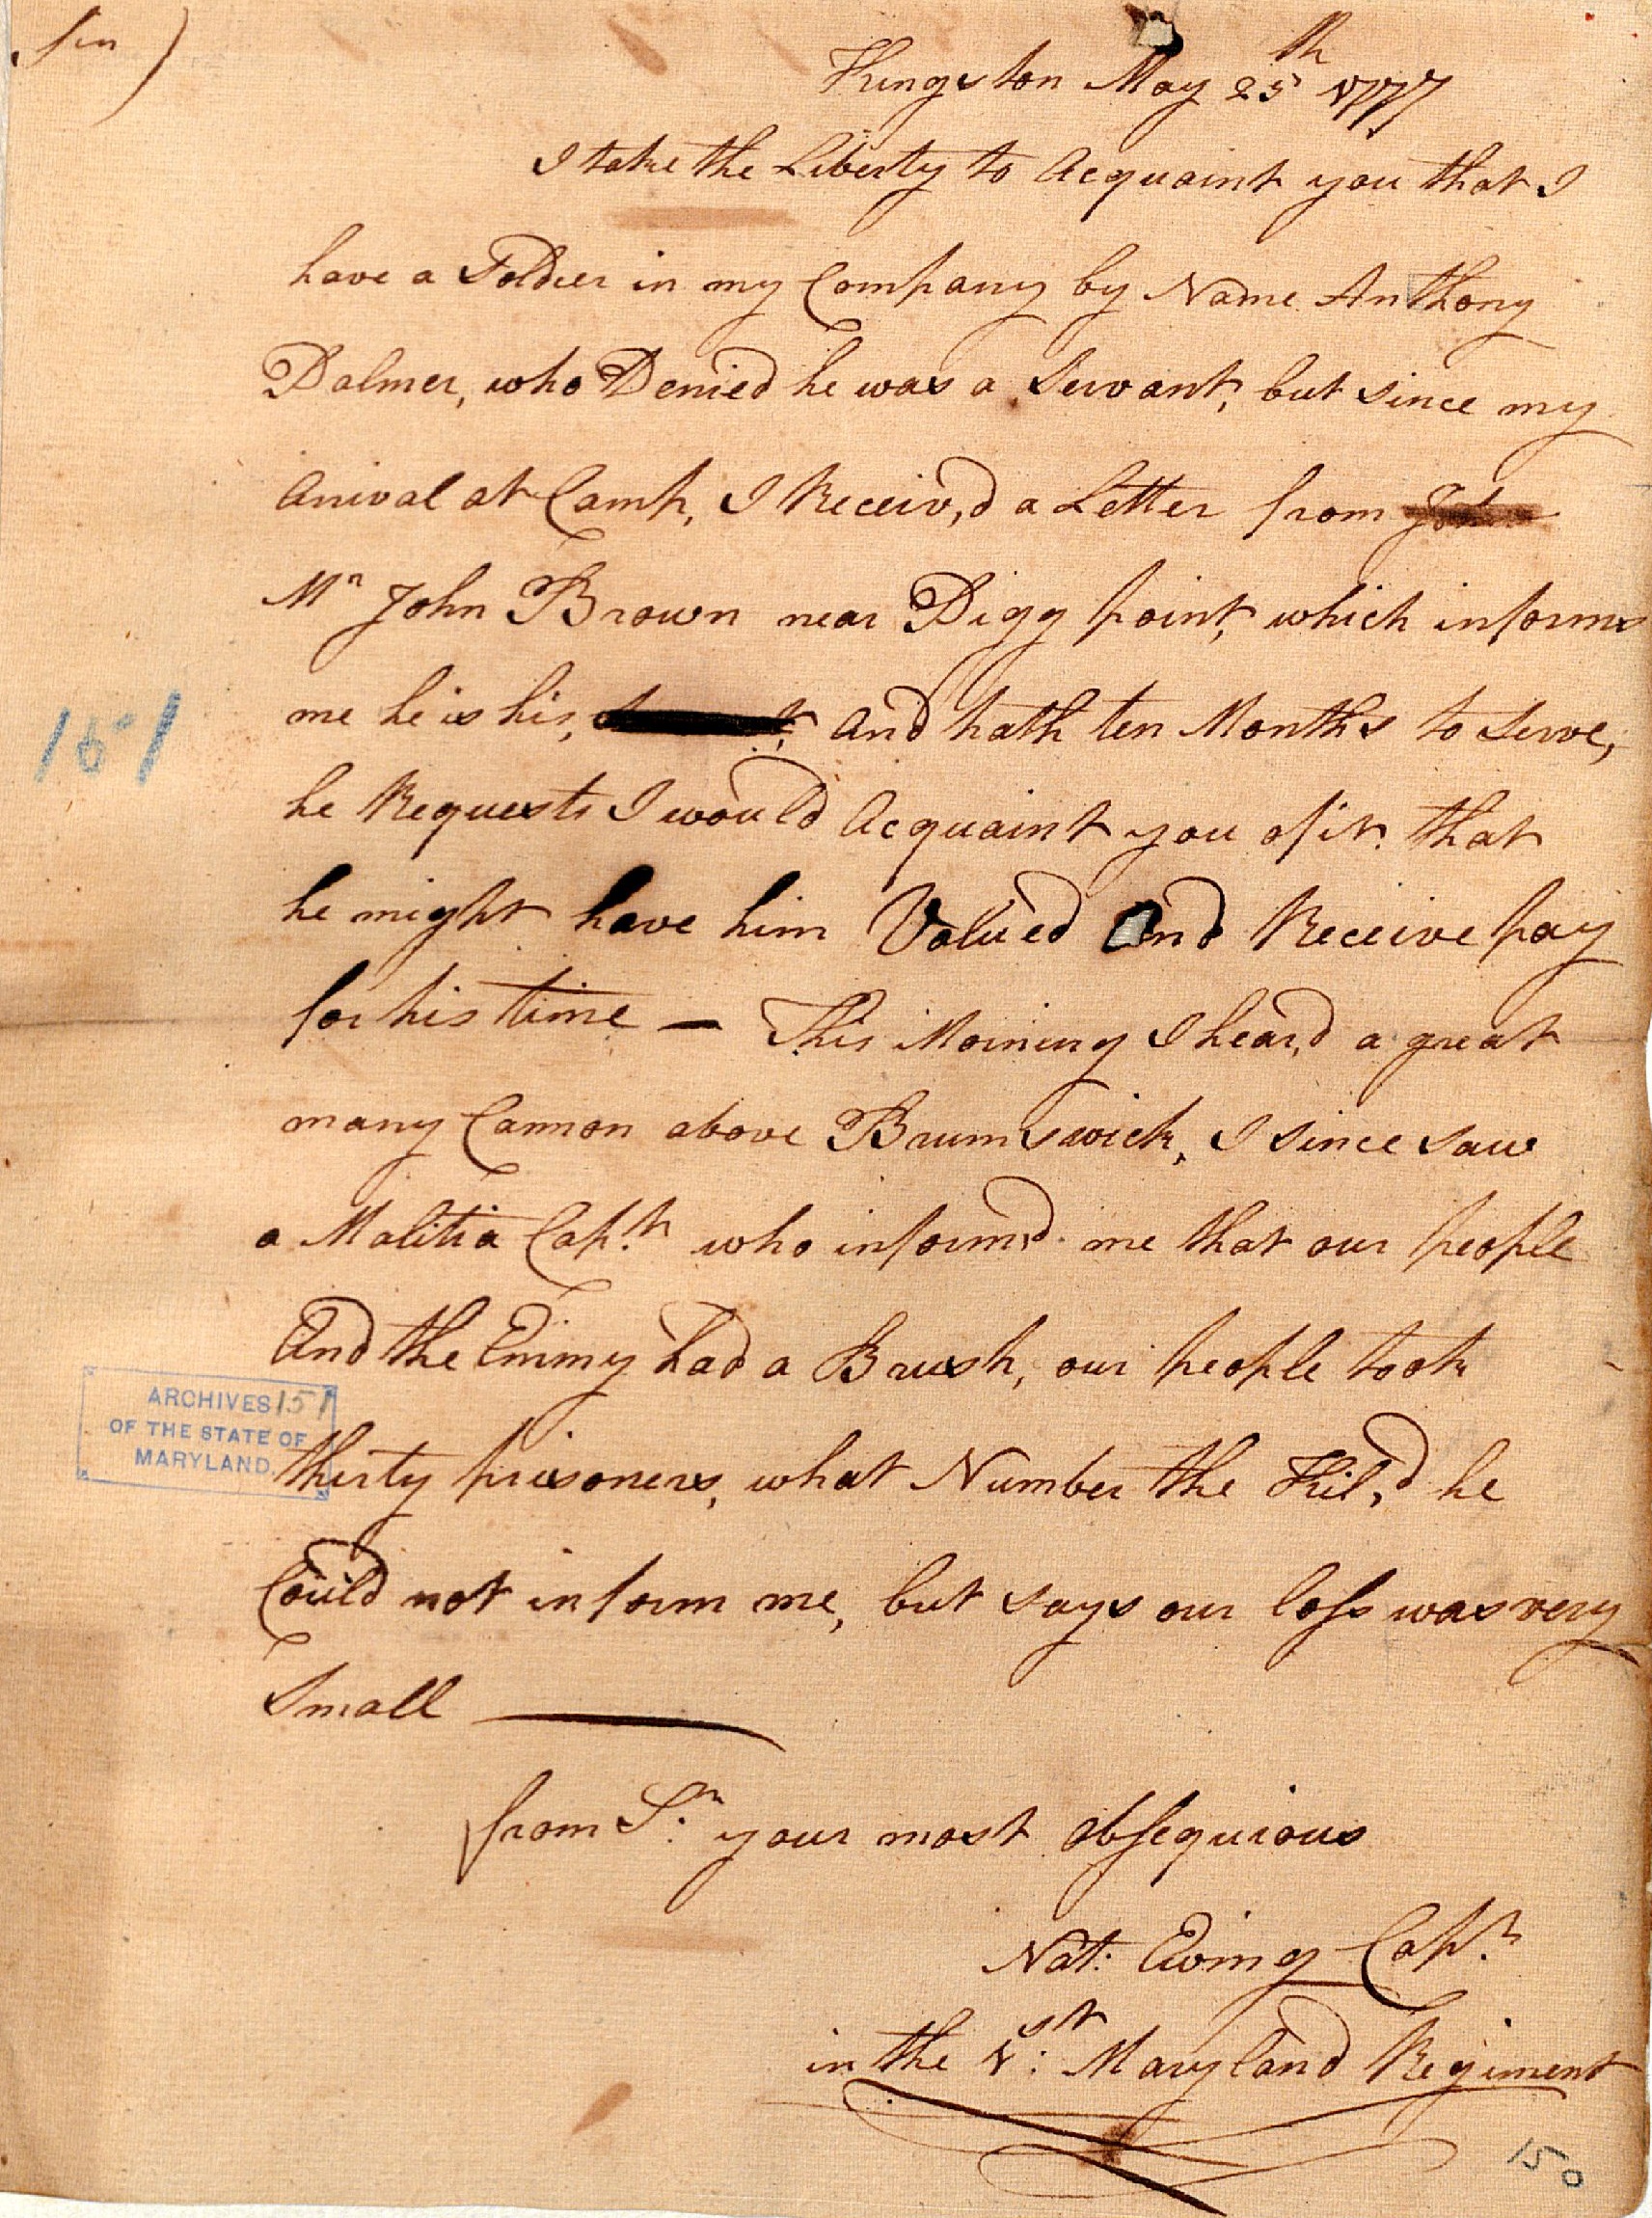 Sir)
Kingston May 25th 1777
I take the Liberty to Acquaint you that I
have a Soldier in my Company by Name Anthony
Palmer, who Denied he was a Servant, but since my
Arival at Camp, I Receiv,d a Letter from John
Mr John Brown near Pigg point, which informs
me he is his, and hath ten Months to Serve,
he Requests I would Acquaint you of it. that
he might have him Valued And Receive pay
for his time — This Morning I hear,d a great
many Cannon above Brumswick, I since saw
a Malitia Capt. who inform,d me that our people
And the Enimy had a Brush, our people took
thirty prisoners, what Number the Kil,d he
Could not inform me, but says our loss was very
Small —
from Sr. your most obsequious
Nat: Ewing Capt.
in the 1st: Maryland Regiment
151
ARCHIVES 151
OF THE STATE OF
MARYLAND
150